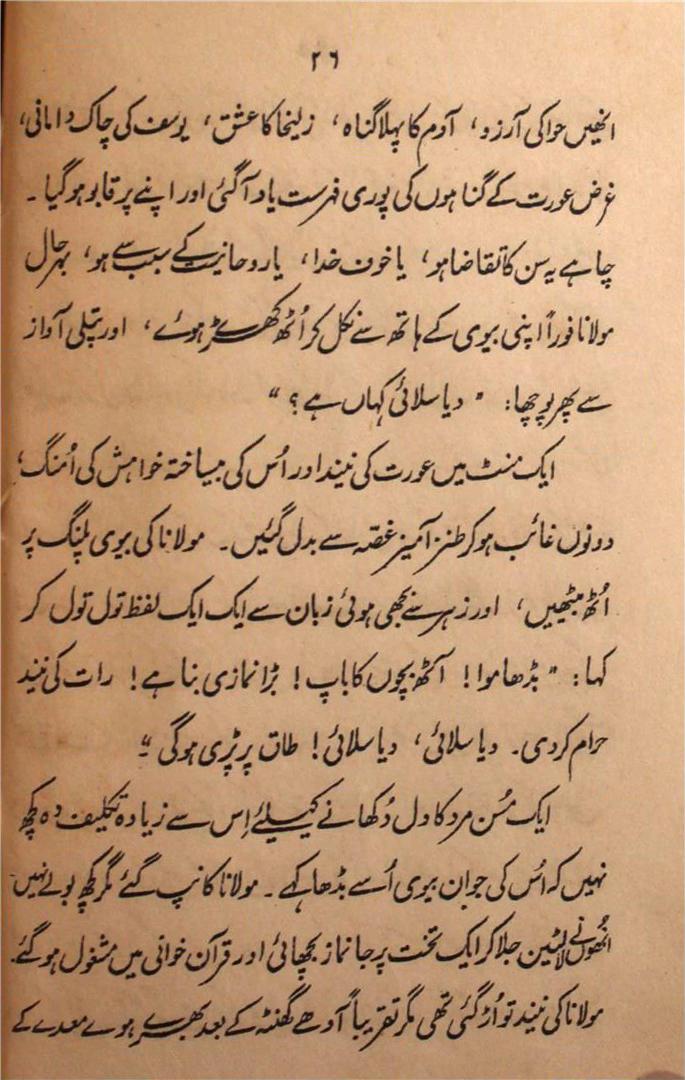 ۲۶
انھیں حوا کی آرزو، آدم کا پہلا گناہ، زلیخا کا عشق، یوسف کی چاک دامانی،
غرض عورت کے گناہوں کی پوری فہرست یاد آگئی اور اپنے پر قابو ہو گیا۔
چاہے یہ سن کا تقاضا ہو، یا خوف خدا، یا روحانیت کے سبب سے ہو، بہرحال
مولانا فوراً اپنی بیوی کے ہاتھ سے نکل کر اُٹھ کھڑے ہوئے، اور پتلی آواز
سے پھر پوچھا: "دیا سلائی کہاں ہے؟"
ایک منٹ میں عورت کی نیند اور اُس کی بیساختہ خواہش کی اُمنگ،
دونوں غائب ہو کر طنز آمیز غصہ سے بدل گئیں۔ مولانا کی بیوی پلنگ پر
اُٹھ بیٹھیں، اور زہر سے بجھی ہوئی زبان سے ایک ایک لفظ تول تول کر
کہا: "بڈھا موا! آٹھ بچوں کا باپ! بڑا نمازی بنا ہے! رات کی نیند
حرام کر دی۔ دیا سلائی، دیا سلائی! طاق پر پڑی ہوگی۔"
ایک مُسن مرد کا دل دُکھانے کیلئے اِس سے زیادہ تکلیف دہ کچھ
نہیں کہ اُس کی جوان بیوی اُسے بڈھا کہے۔ مولانا کانپ گئے مگر کچھ بولے نہیں
اُنھوں نے لالٹین جلا کر ایک تخت پر جانماز بچھائی اور قرآن خوانی میں مشغول ہو گئے۔
مولانا کی نیند تو اُڑ گئی تھی مگر تقریباً آدھے گھنٹہ کے بعد بھرے ہوے معدے کے